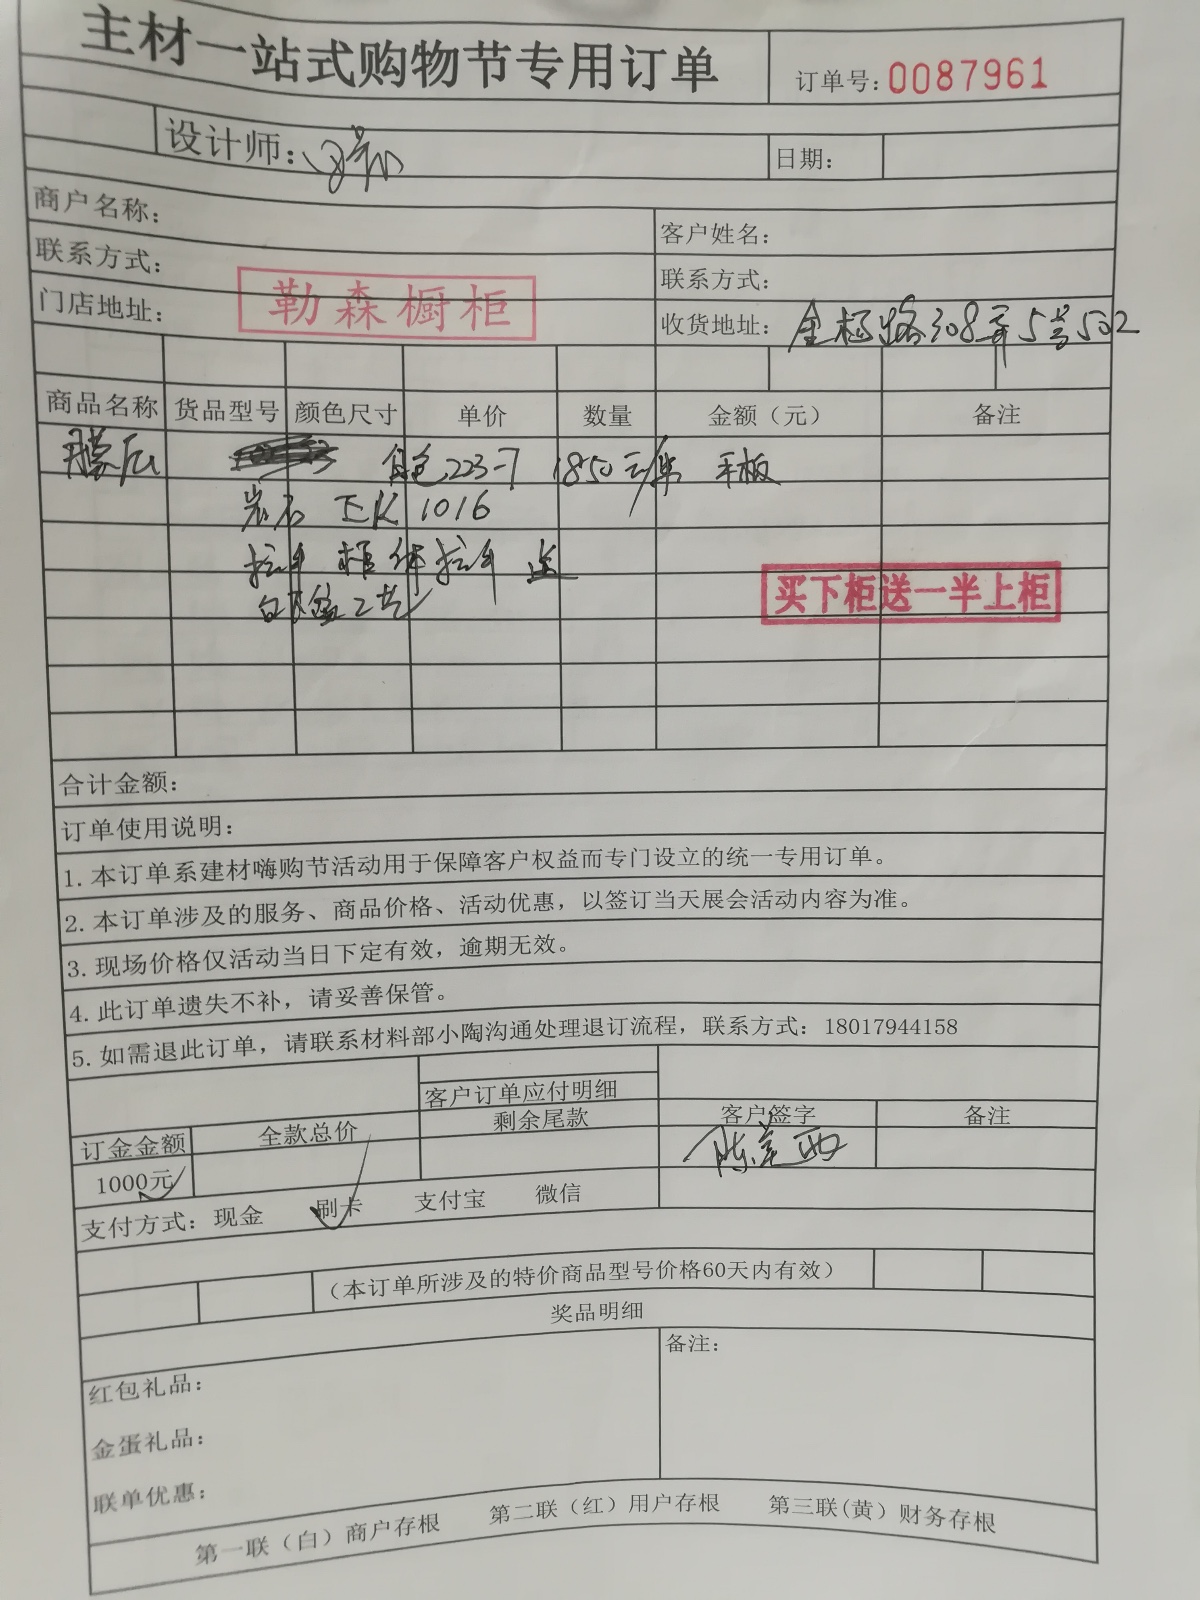 主材一站式购物节专用订单
订单号:0087961
设计师:
日期:
商户名称:
客户姓名:
联系方式:
联系方式:
门店地址:
勒森橱柜
收货地址: 308弄5号502
商品名称 货品型号 颜色尺寸 单价 数量 金额（元） 备注
色223-7 1850元/米 平板
岩石 1016
拉手 拉手 送
买下柜送一半上柜
合计金额:
订单使用说明:
1.本订单系建材嗨购节活动用于保障客户权益而专门设立的统一专用订单。
2.本订单涉及的服务、商品价格、活动优惠，以签订当天展会活动内容为准。
3.现场价格仅活动当日下定有效，逾期无效。
4.此订单遗失不补，请妥善保管。
5.如需退此订单，请联系材料部小陶沟通处理退订流程，联系方式：18017944158
客户订单应付明细
订金金额 全款总价 剩余尾款 客户签字 备注
1000元 陈
支付方式：现金 刷卡 支付宝 微信
（本订单所涉及的特价商品型号价格60天内有效）
奖品明细
备注:
红包礼品:
金蛋礼品:
联单优惠:
第一联（白）商户存根 第二联（红）用户存根 第三联(黄）财务存根